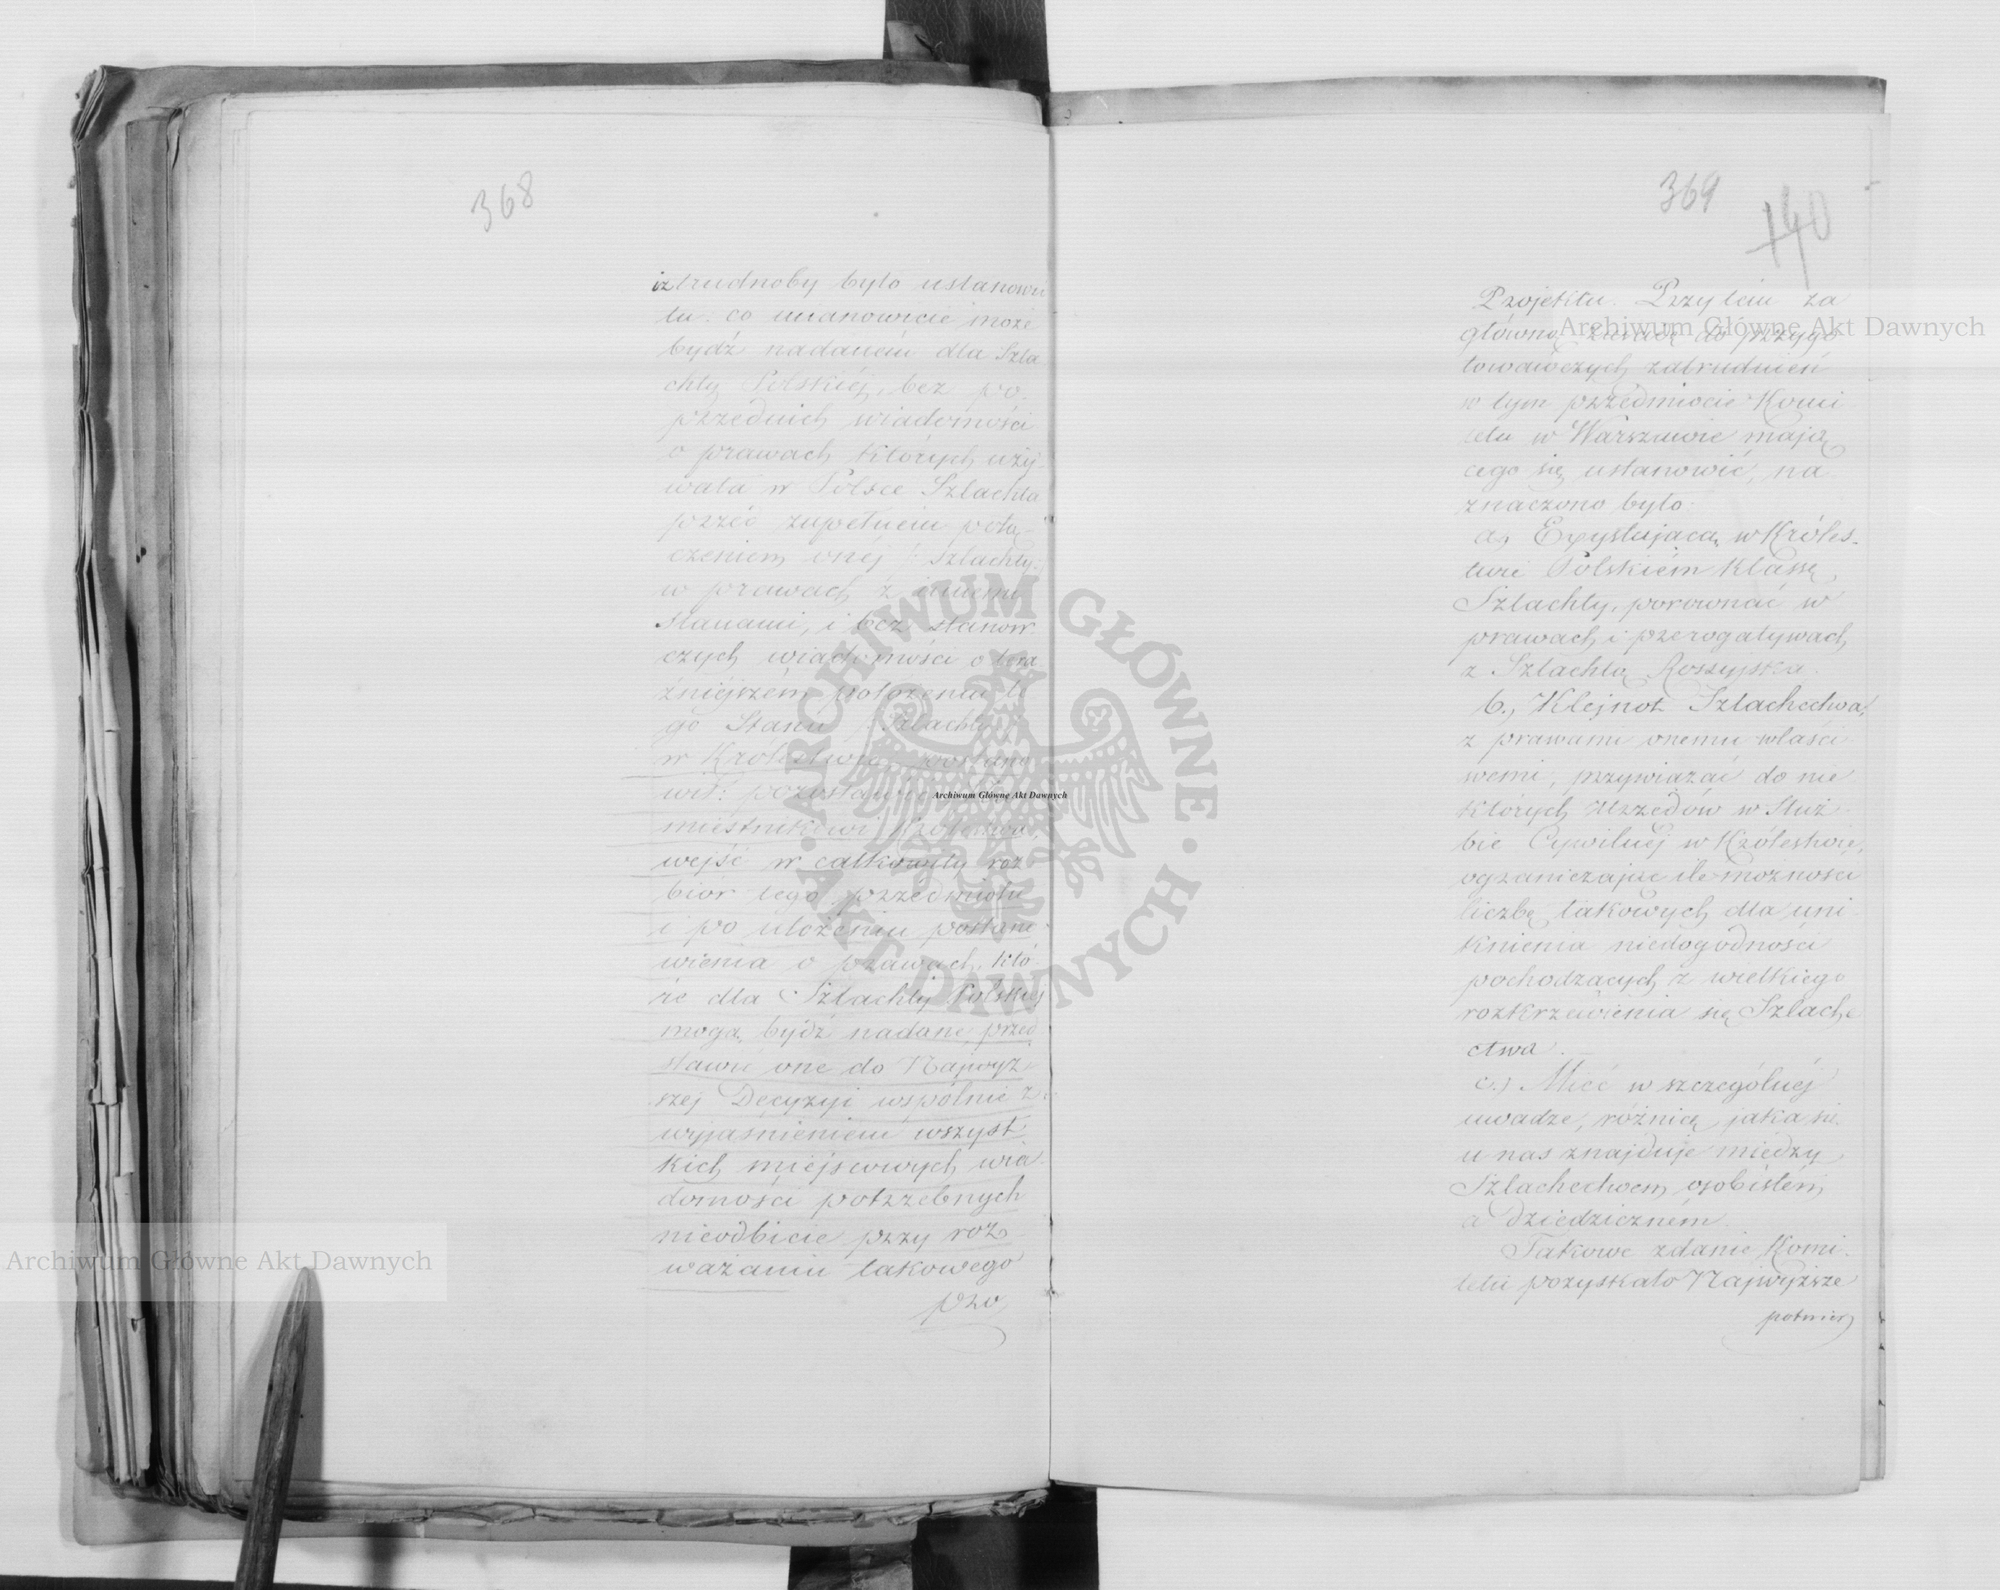 368
iż trudnoby było ustanowić
tu co mianowicie może
bydź nadanem dla Szla
chty Polskiéj, bez po,
przednich wiadomości
o prawach których uży
wała w Polsce Szlachta
przed zupełnem połą-
czeniem onéj /: Szlachty:/
w prawach z innemi
Stanami, i bez stanow
czych wiadomości o tera
źniejszém położeniu te
go Stanu /: Szlachty :/
w Królestwie, postano
wił: pozostawić
miestnikowi Królestwa,
wejść w całkowity roz
biór tego przedmiotu
i po ułożeniu postano
wienia o prawach, któ-
re dla Szlachty Polskiej
mogą bydź nadane, przed
stawić one do Najwyż
szej Decyzyi wspólnie z
wyjaśnieniem wszyst
kich miejscowych wia
domości potrzebnych
nieodbicie przy roz
ważaniu takowego
pro
369
140
Projektu. Przytém za
główną zasadę do przygo
towawczych zatrudnień
w tym przedmiocie Komi
tetu w Warszawie mają
cego się ustanowić, na
znaczono było:
a) Exystującą w Króles-
twie Polskiém klassę
Szlachty, porownać w
prawach i prerogatywach
z Szlachtą Rossyjską.
b., Klejnot Szlachectwa,
z prawami onemu właści
wemi, przywiązać do nie
których Urzędów w Służ
bie Cywilnéj w Królestwie,
ograniczając ile możności
liczbę takowych dla uni
knienia niedogodności
pochodzących z wielkiego
rozkrzewienia się Szlache
ctwa.
c.) Mieć w szczególnéj
uwadze, różnicę jaka się
u nas znajduje między
Szlachectwem osobistém
a dziedziczném.
Takowe zdanie Komi
tetu pozyskało Najwyższe
potwier
Archiwum Główne Akt Dawnych
Archiwum Główne Akt Dawnych
Archiwum Główne Akt Dawnych
ARCHIWUM GŁÓWNE · AKT DAWNYCH ·